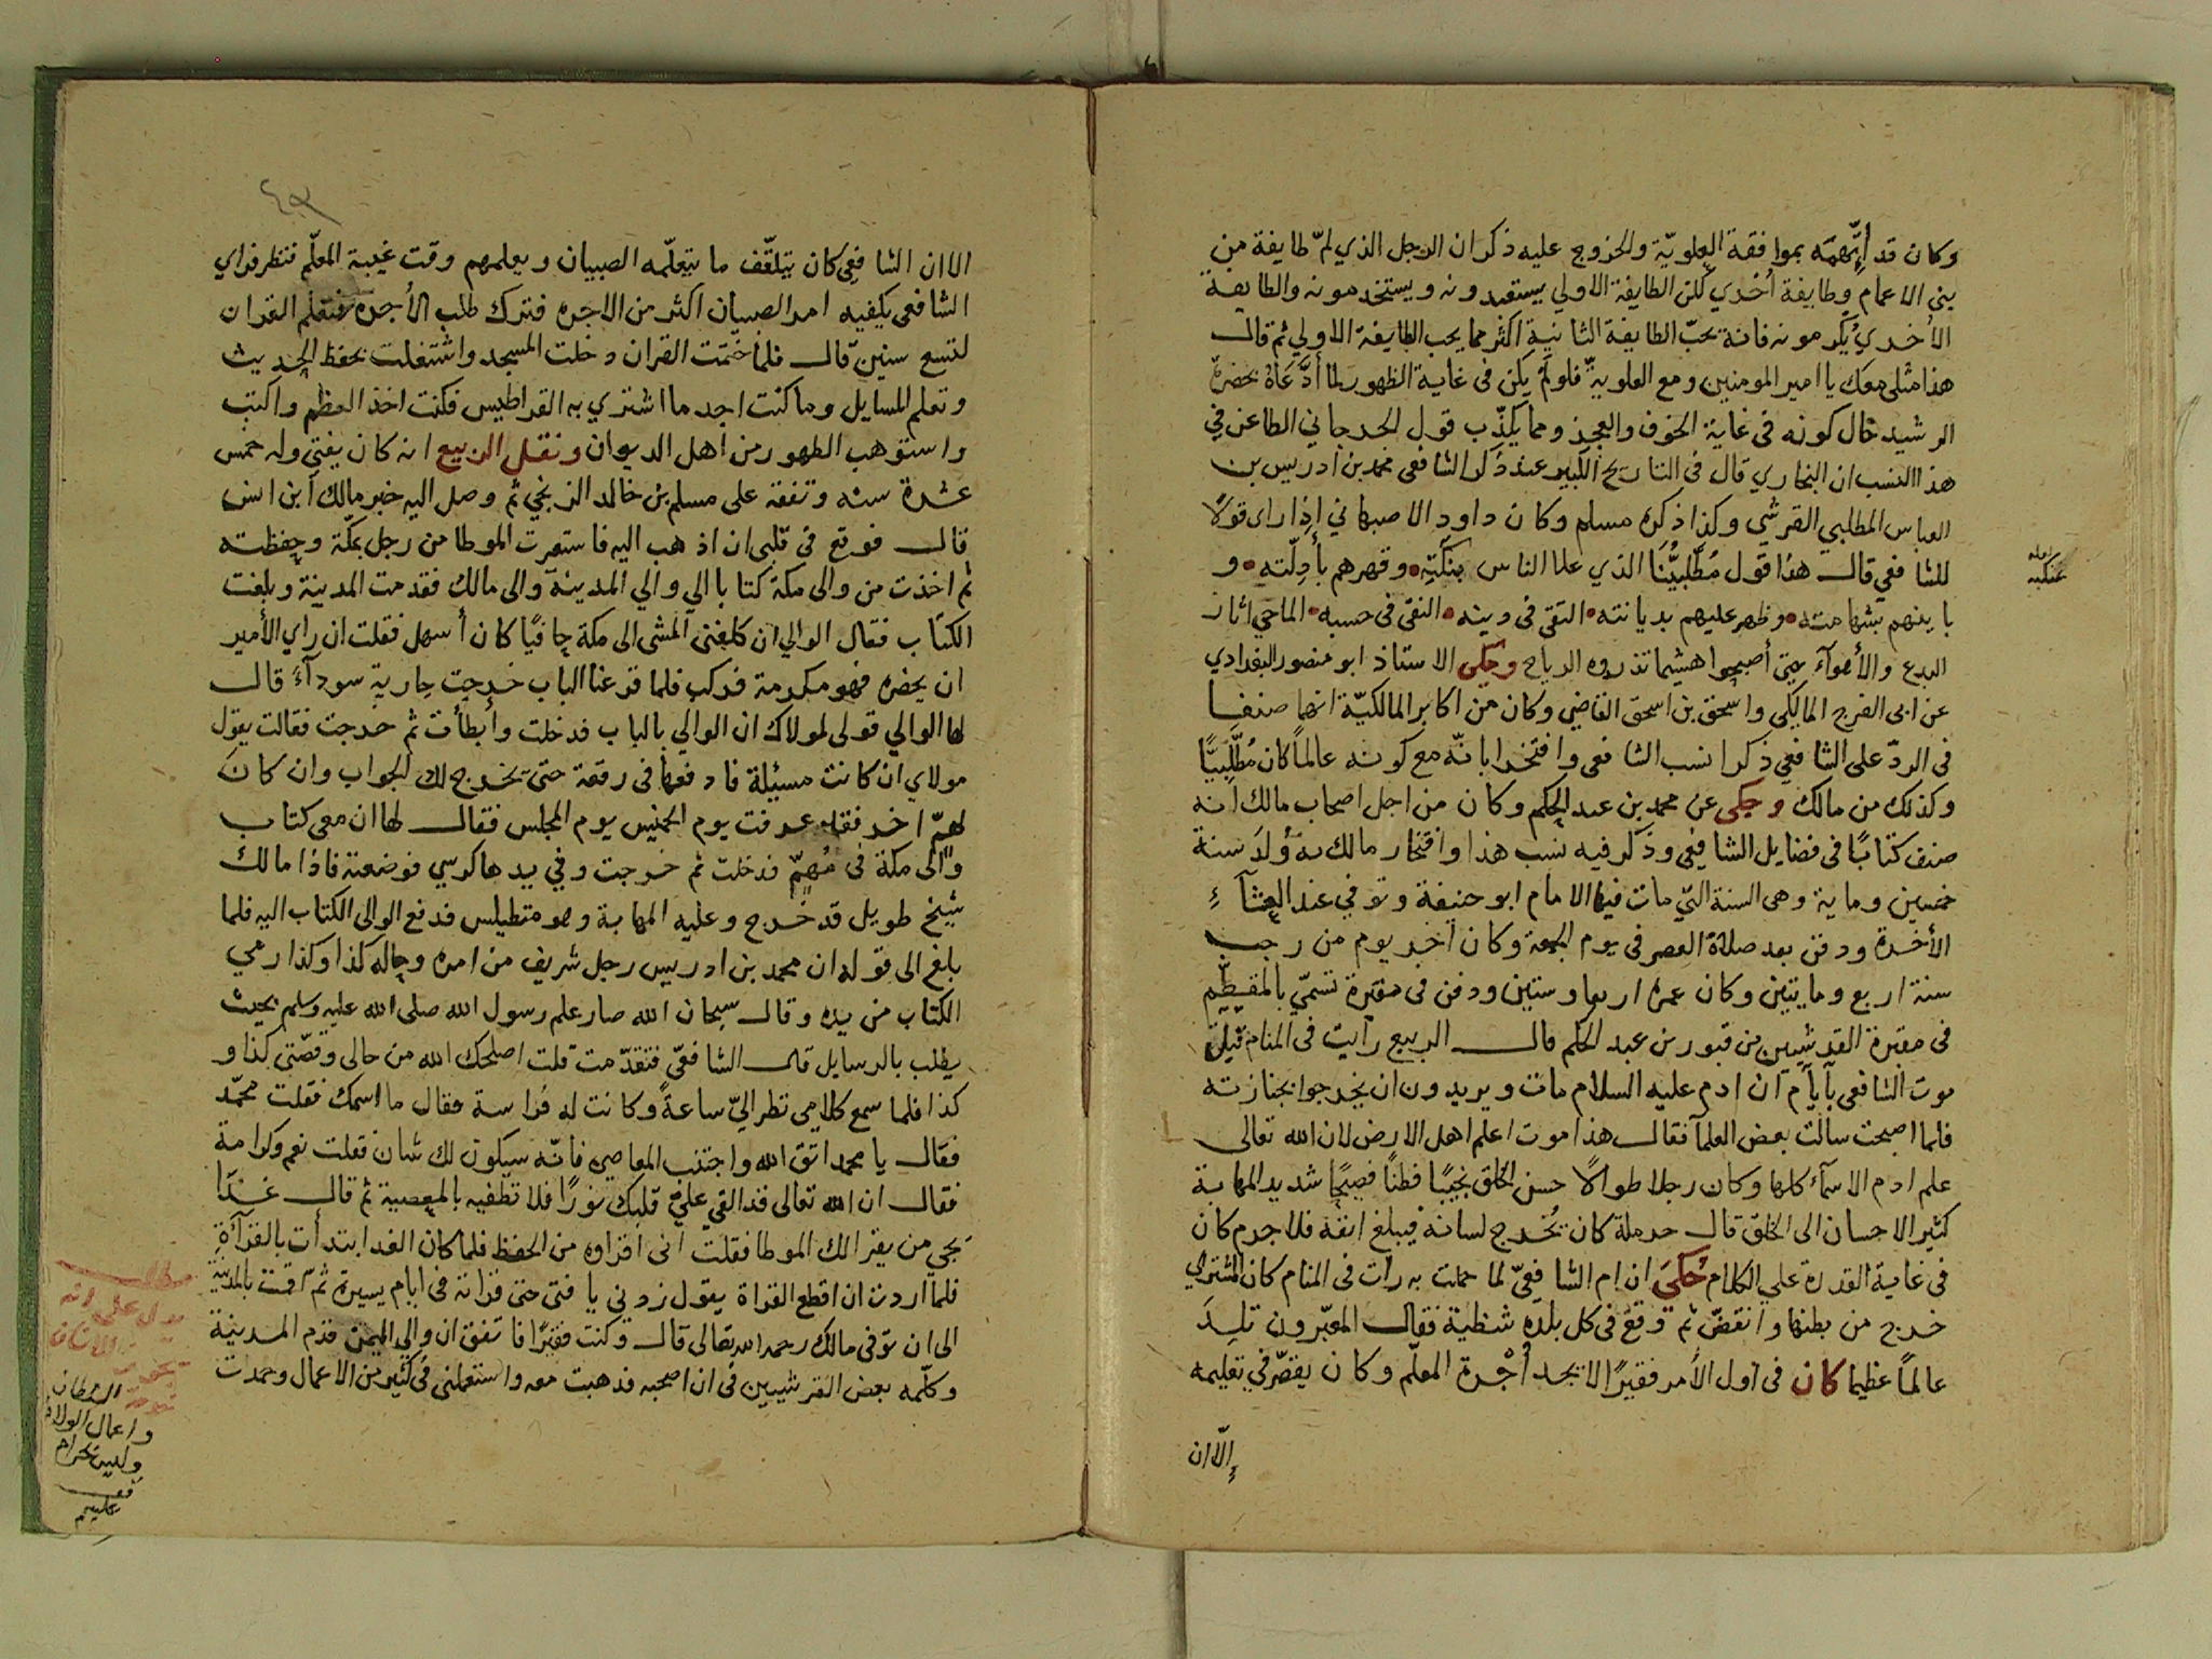 وكان قد اتّهمه بموافقة العلويّة والخروج عليه ذكر ان الرجل الذي لمّ طايفة من
بني الاعمام وطايفة اُخري لكن الطايفة الاولي يستعبدونه ويستخدمونه والطايفة
الاُخري يُكرمونه فانه يحبّ الطايفة الثانية اكثر مما يحب الطايفة الاولي ثم قال
هذا مثلي معك يا امير المومنين ومع العلوية فلو لم يكن في غاية الظهور لما أدّعاهُ بحضرة
الرشيد حال كونه في غاية الخوف والعجز ومما يكذّب قول الجرجاني الطاعن في
هذا النسب ان البخاري قال في التاريخ الكبير عند ذكر الشافعي محمد بن ادريس بن
العباس المطلبي القرشي وكذا ذكره مسلم وكان داود الاصبهاني إذا راى قولًا
للشافعي قال هذا قول مُطّلبيّنا الذي علا الناس بنكته وقهرهم بأدِلّته و
باينهم بشهامته وظهر عليهم بديانته التقى في دينه النقى في حسبه الماحي اثار
البدع والأهوآء حتى أصبحوا هشيما تذروه الرياح وحكى الاستاذ ابو منصور البغدادي
عن ابى الفرج المالكى واسحق بن اسحق القاضي وكان من اكابر المالكيّة انهما صنفا
في الردّ على الشافعي ذكرا نسب الشافعى وافتخرا بانّه مع كونه عالماً كان مُطّلِبيًّا
وكذلك من مالك وحكى عن محمد بن عبد الحكم وكان من اجل اصحاب مالك انه
صنف كتابًا في فضايل الشافعى وذكر فيه نسب هذا وافتخار مالك به وُلدَ سنة
خمسين وماية وهى السنة التي مات فيها الامام ابو حنيفة وتوفي عند العشآء
الأخرة ودفن بعد صلاة العصر في يوم الجمعة وكان آخر يوم من رجب
سنة اربع ومايتين وكان عمره اربعا وستين ودفن في مقبرة تسمّي بالمقطّم
في مقبرة القرشيين من قبور بن عبد الحكم قال الربيع رأيت في المنام قبل
موت الشافعى بأيام ان ادم عليه السلام مات ويريدون ان يخرجوا بجنازته
فلما اصبحت سالت بعض العلمآ فقال هذا موت اعلم اهل الارض لان الله تعالى
علم ادم الاسمآء كلها وكان رجلا طوالًا حسن الخلق نجيبًا فطناً فصيحًا شديد المهابة
كثير الاحسان الى الخلق قال حرملة كان يُخرج لسانه فيبلغ انفه فلا جرم كان
في غاية القدرة علي الكلام حُكيَ ان ام الشافعيّ لما حملت به رأت في المنام كان المشترى
خرج من بطنها وانقضّ ثم وقع في كل بلده شظية فقال المعبّرون تلِدَ
عالماً عظيما كان في اول الأمر فقيرًا لا يجد اُجْرة المعلّم وكان يقصّر في تعليمه
إلّا ان
الا ان الشافعي كان يتلقّف ما يتعلّمه الصبيان ويعلمهم وقت غيبة المعلّم فنظر فراي
الشافعى يكفيه امر الصبيان اكثر من الاجره فترك طلب الأجرة فتعلم القران
لتسع سنين قال فلما ختمت القران دخلت المسجد واشتغلت بحفظ الحديث
وتعلم المسايل وما كنت اجد ما اشتري به القراطيس فكنت اخذ العظم واكتب
واستوهب الظهور من اهل الديوان ونقل الربيع انه كان يفتي وله خمس
عشرة سنه وتفقه على مسلم بن خالد الزنجي ثم وصل اليه خبر مالك ابن انس
قال فوقع في قلبى ان اذهب اليه فاستعرت الموطا من رجل بمكّة وحفظته
ثم اخذت من والى مكة كتابا الي والي المدينة والى مالك فقدمت المدينة وبلغت
الكتاب فقال الوالي ان كلفتني المشى الى مكة حافيًا كان أسهل فقلت ان راي الأمير
ان يحضره فهو مكرمة فركب فلما قرعنا الباب خرجت جارية سودآءُ قال
لها الوالي قولى لمولاك ان الوالي بالباب فدخلت وأبطأت ثم خرجت فقالت يقول
مولاي ان كانت مسيئلة فادفعها في رقعة حتى يخرج لك الجواب وان كان
لهمّ اخر فقد عرفت يوم الخميس يوم المجلس فقال لها ان معى كتاب
والى مكة في مُهمّ فدخلت ثم خرجت وفي يدها كرسي فوضعته فاذا مالك
شيخ طويل قد خرج وعليه المهابة وهو متطيلس فدفع الوالى الكتاب اليه فلما
بلغ الى قوله ان محمد بن ادريس رجل شريف من امره وحاله كذا وكذا رمي
الكتاب من يده وقال سبحان الله صار علم رسول الله صلى الله عليه وسلم بحيث
يطلب بالرسايل قال الشافعيّ فتقدّمت قلت اصلحك الله من حالى وقصّتى كذا و
كذا فلما سمع كلامى نظر اليّ ساعةً وكانت له فُراسة فقال ما اسمك فقلت محمّد
فقال يا محمد اتق الله واجتنب المعاصي فانّه سيكون لك شان فقلت نعم وكرامة
فقال ان الله تعالى قد القي علي قلبك نورًا فلا تطفيه بالمعصية ثم قال غدًا
يجي من يقرا لك الموطا فقلت انى اقراوه من الحفظ فلما كان الغد ابتدأت بالقرآءةِ
فلمّا اردت ان اقطع القراة يقول زدني يا فتى حتى قراته في ايام يسيرة ثمّ اقمت بالمدينة
الى ان توفى مالك رحمه الله تعالى قال وكنت فقيرًا فاتفق ان والي اليمن قدم المدينة
وكلّمه بعض القرشيين في ان اصحبه فذهبت معه واستعملنى في كثير من الاعمال وحمدت
مطلب
يدل على انه
السلطان
واعمال الولاة
وليس بحرام